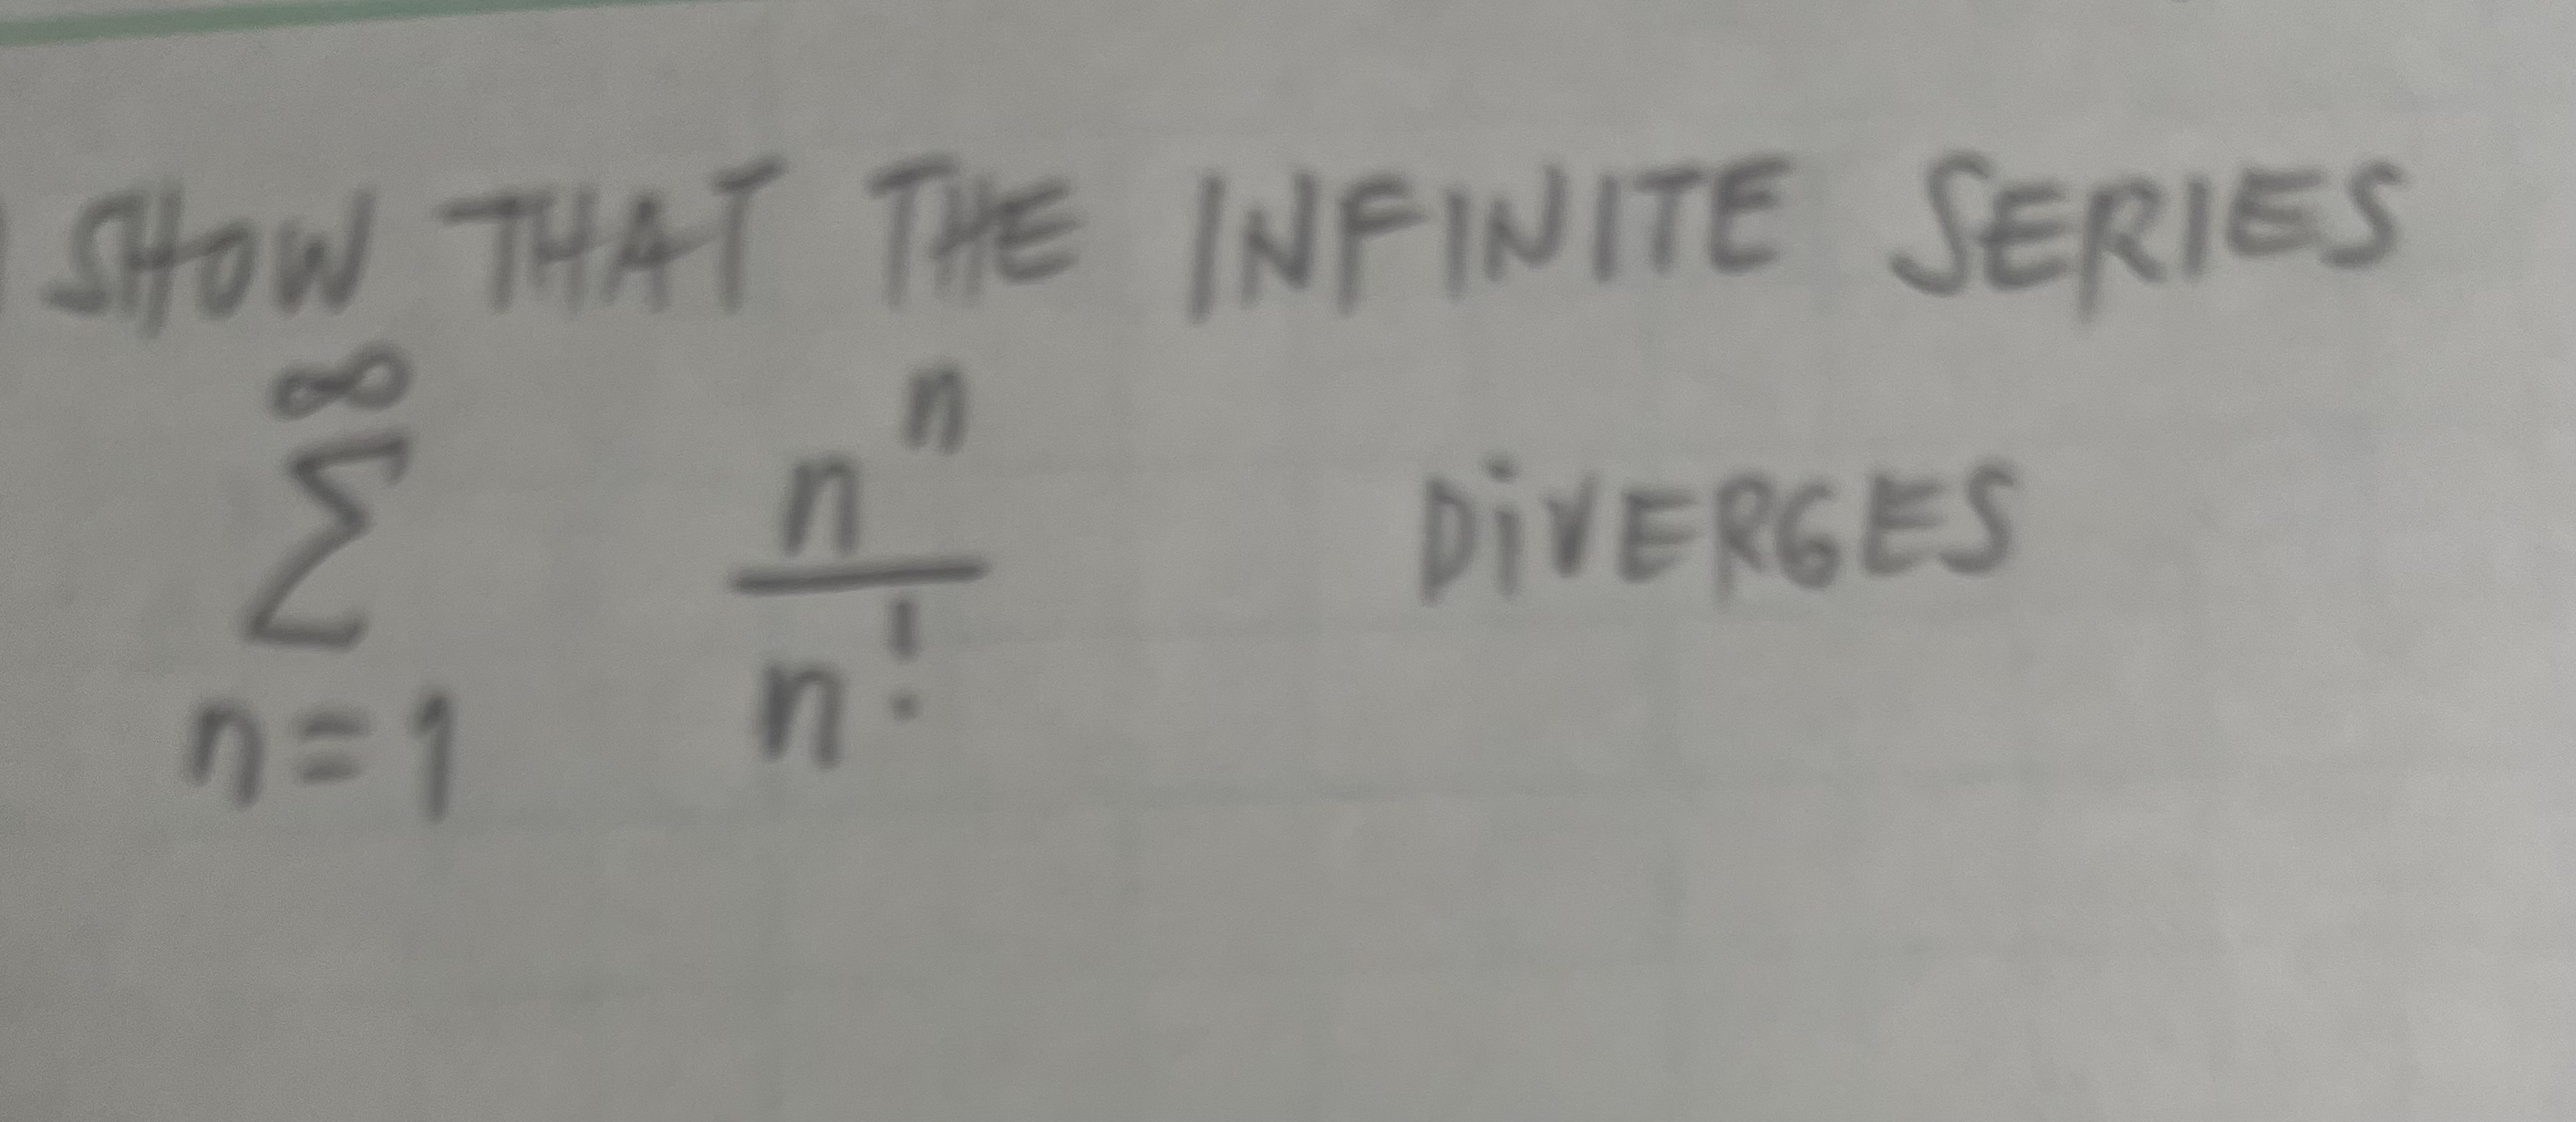 SHOW THAT THE INFINITE SERIES
∞
∑ n^n / n! DIVERGES
n=1